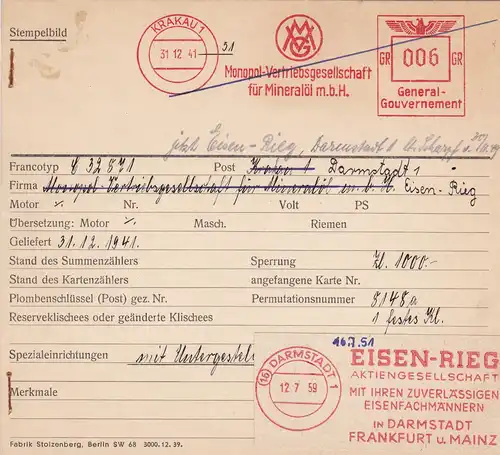 Stempelbild
KRAKAU 1
31 12 41
31
M V G
Monopol-Vertriebsgesellschaft
für Mineralöl m.b.H.
GR 006 GR
General-
Gouvernement
jetzt Eisen-Rieg, Darmstadt
Francotyp C 32571 Post Krakau 1 Darmstadt 1
Firma Monopol-Vertriebsgesellschaft für Mineralöl m.b.H. Eisen-Rieg
Motor ∕. Nr. Volt PS
Übersetzung: Motor ∕. Masch. Riemen
Geliefert 31.12.1941.
Stand des Summenzählers Sperrung Zl. 1000.-
Stand des Kartenzählers angefangene Karte Nr.
Plombenschlüssel (Post) gez. Nr. Permutationsnummer 8148a
Reserveklischees oder geänderte Klischees 1 festes Kl.
16.7.51
Spezialeinrichtungen mit Untergestell
Merkmale
(16) DARMSTADT 1
12 7 59
EISEN-RIEG
AKTIENGESELLSCHAFT
MIT IHREN ZUVERLÄSSIGEN
EISENFACHMÄNNERN
IN DARMSTADT
FRANKFURT u. MAINZ
Fabrik Stolzenberg, Berlin SW 68 3000.12.39.